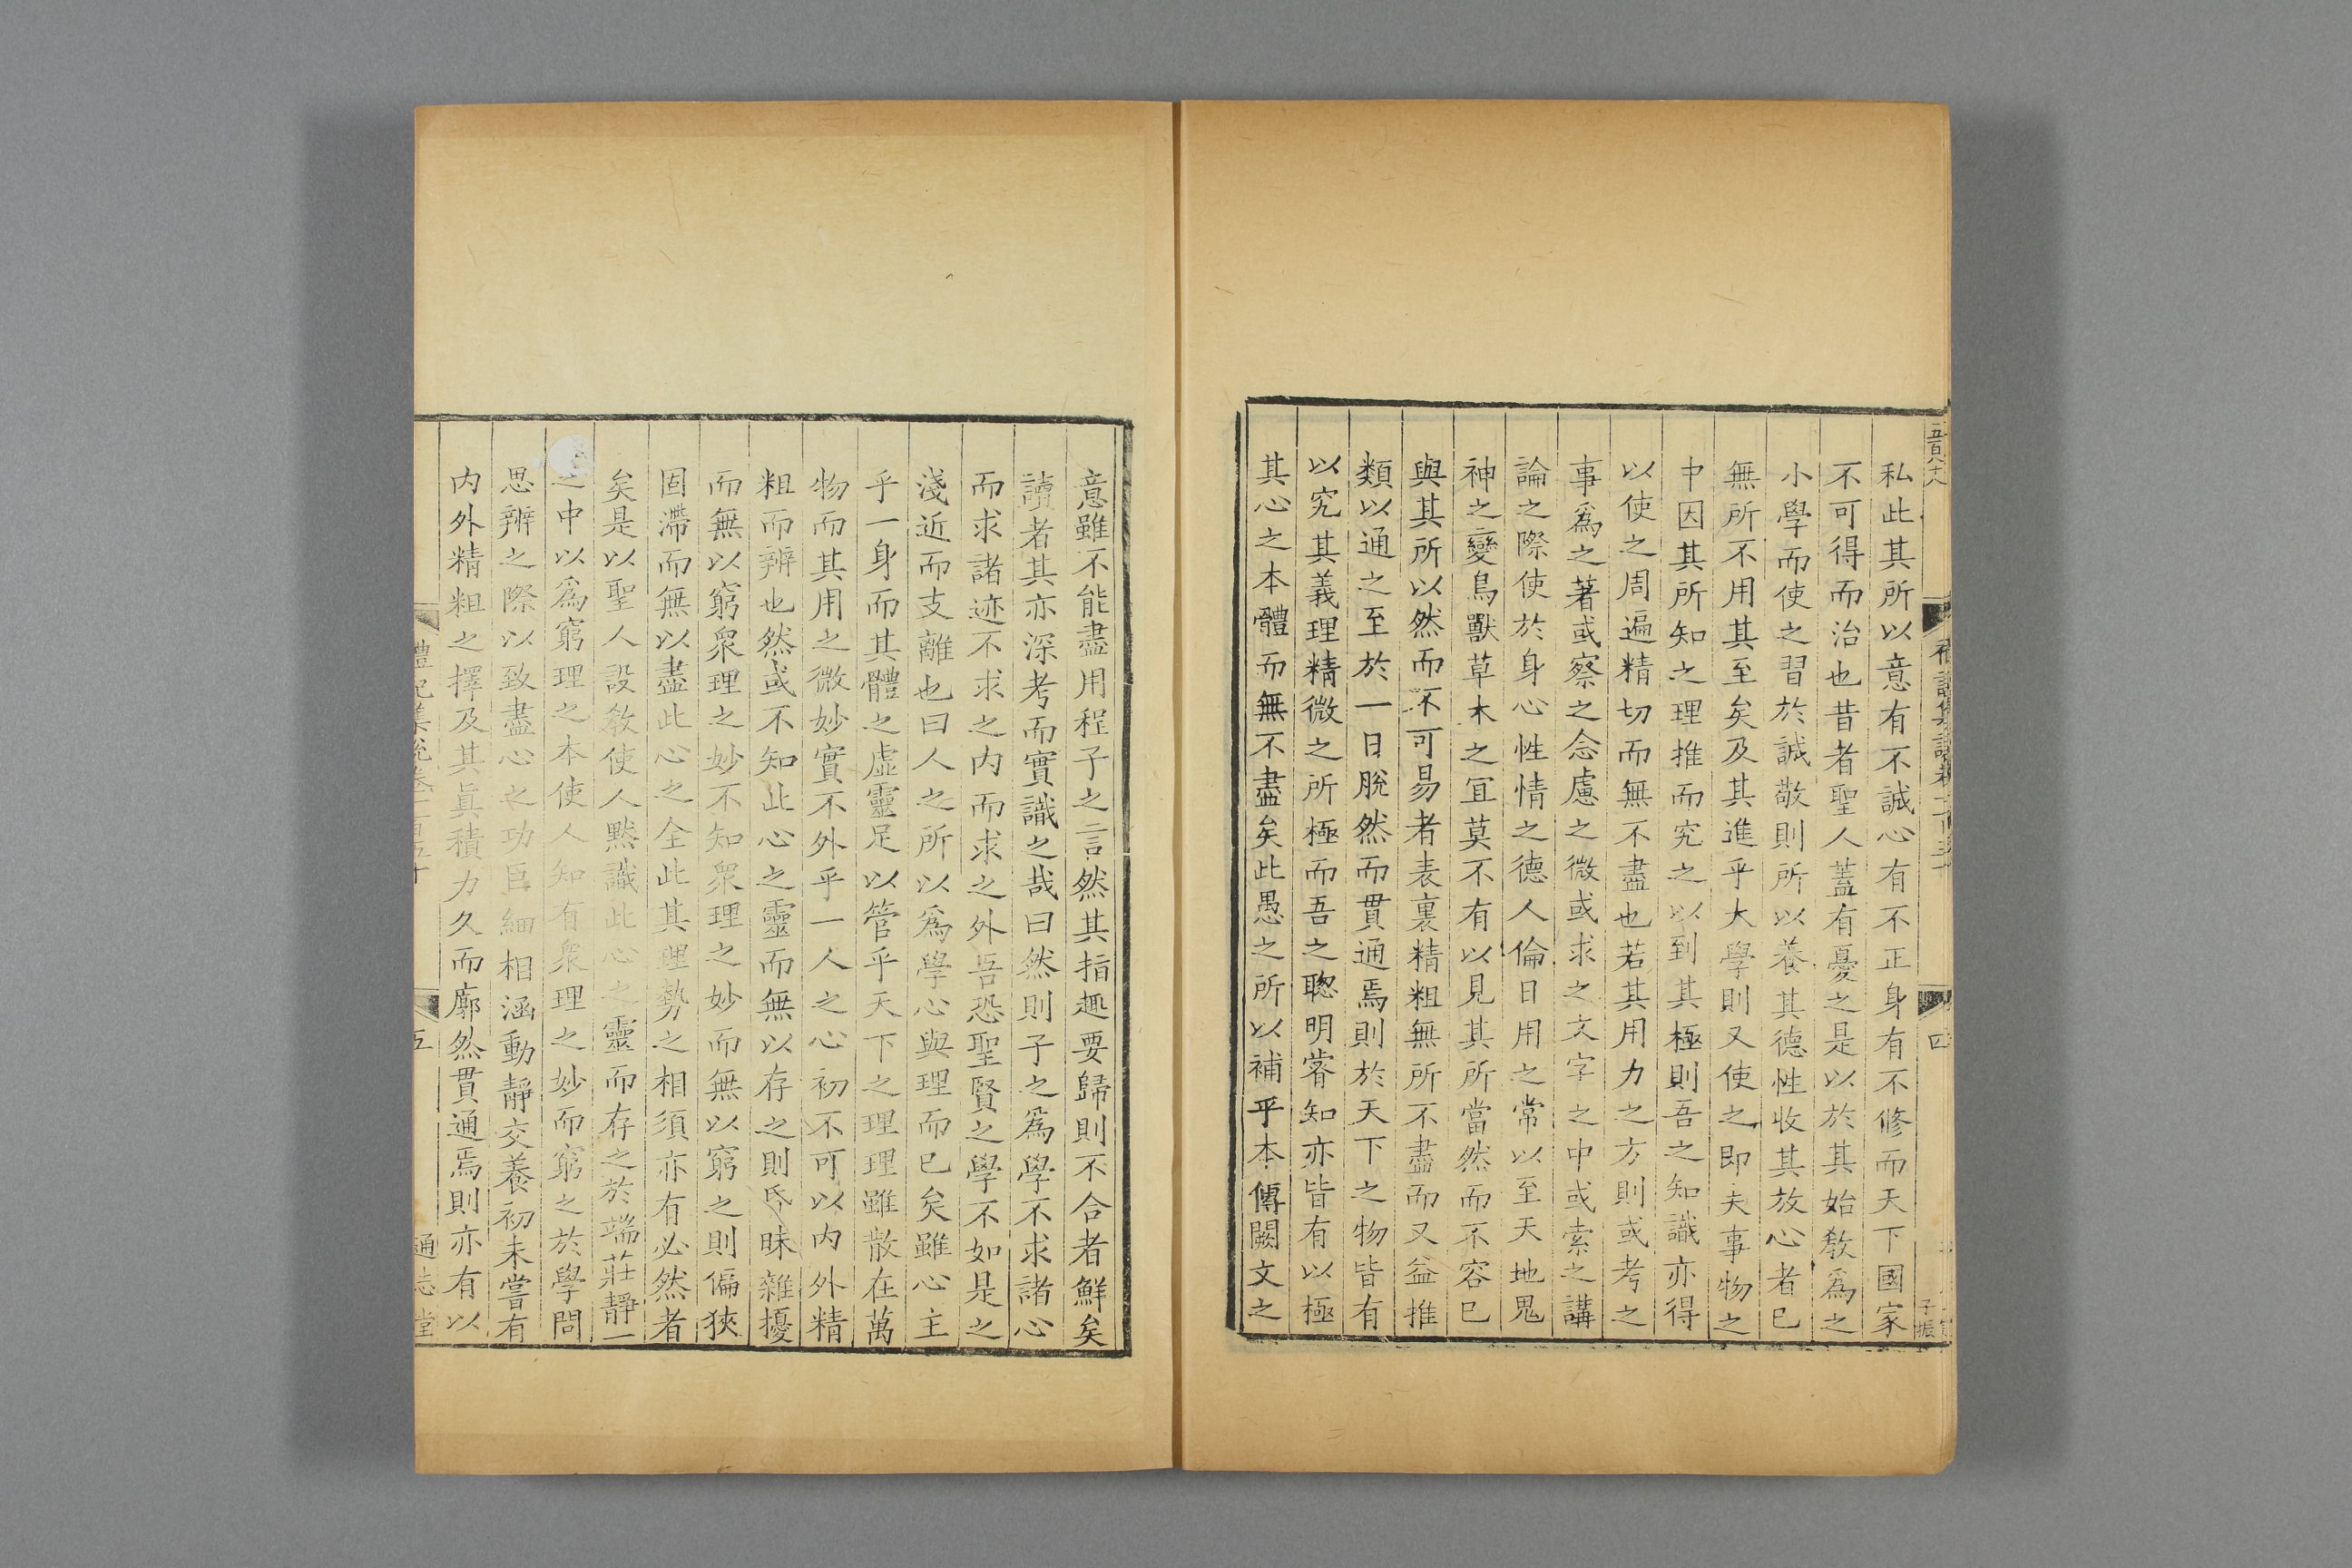 私此其所以意有不誠心有不正身有不修而天下國家
不可得而治也昔者聖人蓋有憂之是以於其始敎爲之
小學而使之習於誠敬則所以養其德性收其放心者已
無所不用其至矣及其進乎大學則又使之即夫事物之
中因其所知之理推而究之以到其極則吾之知識亦得
以使之周遍精切而無不盡也若其用力之方則或考之
事爲之著或察之念慮之微或求之文字之中或索之講
論之際使於身心性情之德人倫日用之常以至天地鬼
神之變鳥獸草木之宜莫不有以見其所當然而不容已
與其所以然而不可易者表裏精粗無所不盡而又益推
類以通之至於一日脫然而貫通焉則於天下之物皆有
以究其義理精微之所極而吾之聦明睿知亦皆有以極
其心之本體而無不盡矣此愚之所以補乎本傳闕文之
意雖不能盡用程子之言然其指趣要歸則不合者鮮矣
讀者其亦深考而實識之哉曰然則子之爲學不求諸心
而求諸迹不求之内而求之外吾恐聖賢之學不如是之
淺近而支離也曰人之所以爲學心與理而已矣雖心主
乎一身而其體之虛靈足以管乎天下之理理雖散在萬
物而其用之微妙實不外乎一人之心初不可以内外精
粗而辨也然或不知此心之靈而無以存之則昏昧雜擾
而無以窮衆理之妙不知衆理之妙而無以窮之則偏狹
固滯而無以盡此心之全此其理勢之相須亦有必然者
矣是以聖人設敎使人默識此心之靈而存之於端莊靜一
之中以爲窮理之本使人知有衆理之妙而窮之於學問
思辨之際以致盡心之功巨細相涵動靜交養初未嘗有
内外精粗之擇及其眞積力久而廓然貫通焉則亦有以
禮記集說卷一百五十
五
通志堂